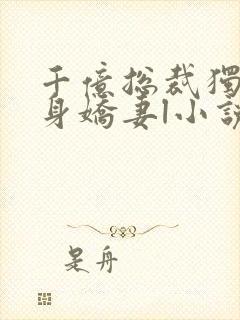 千億總裁獨
身嬌妻|小說
是舟